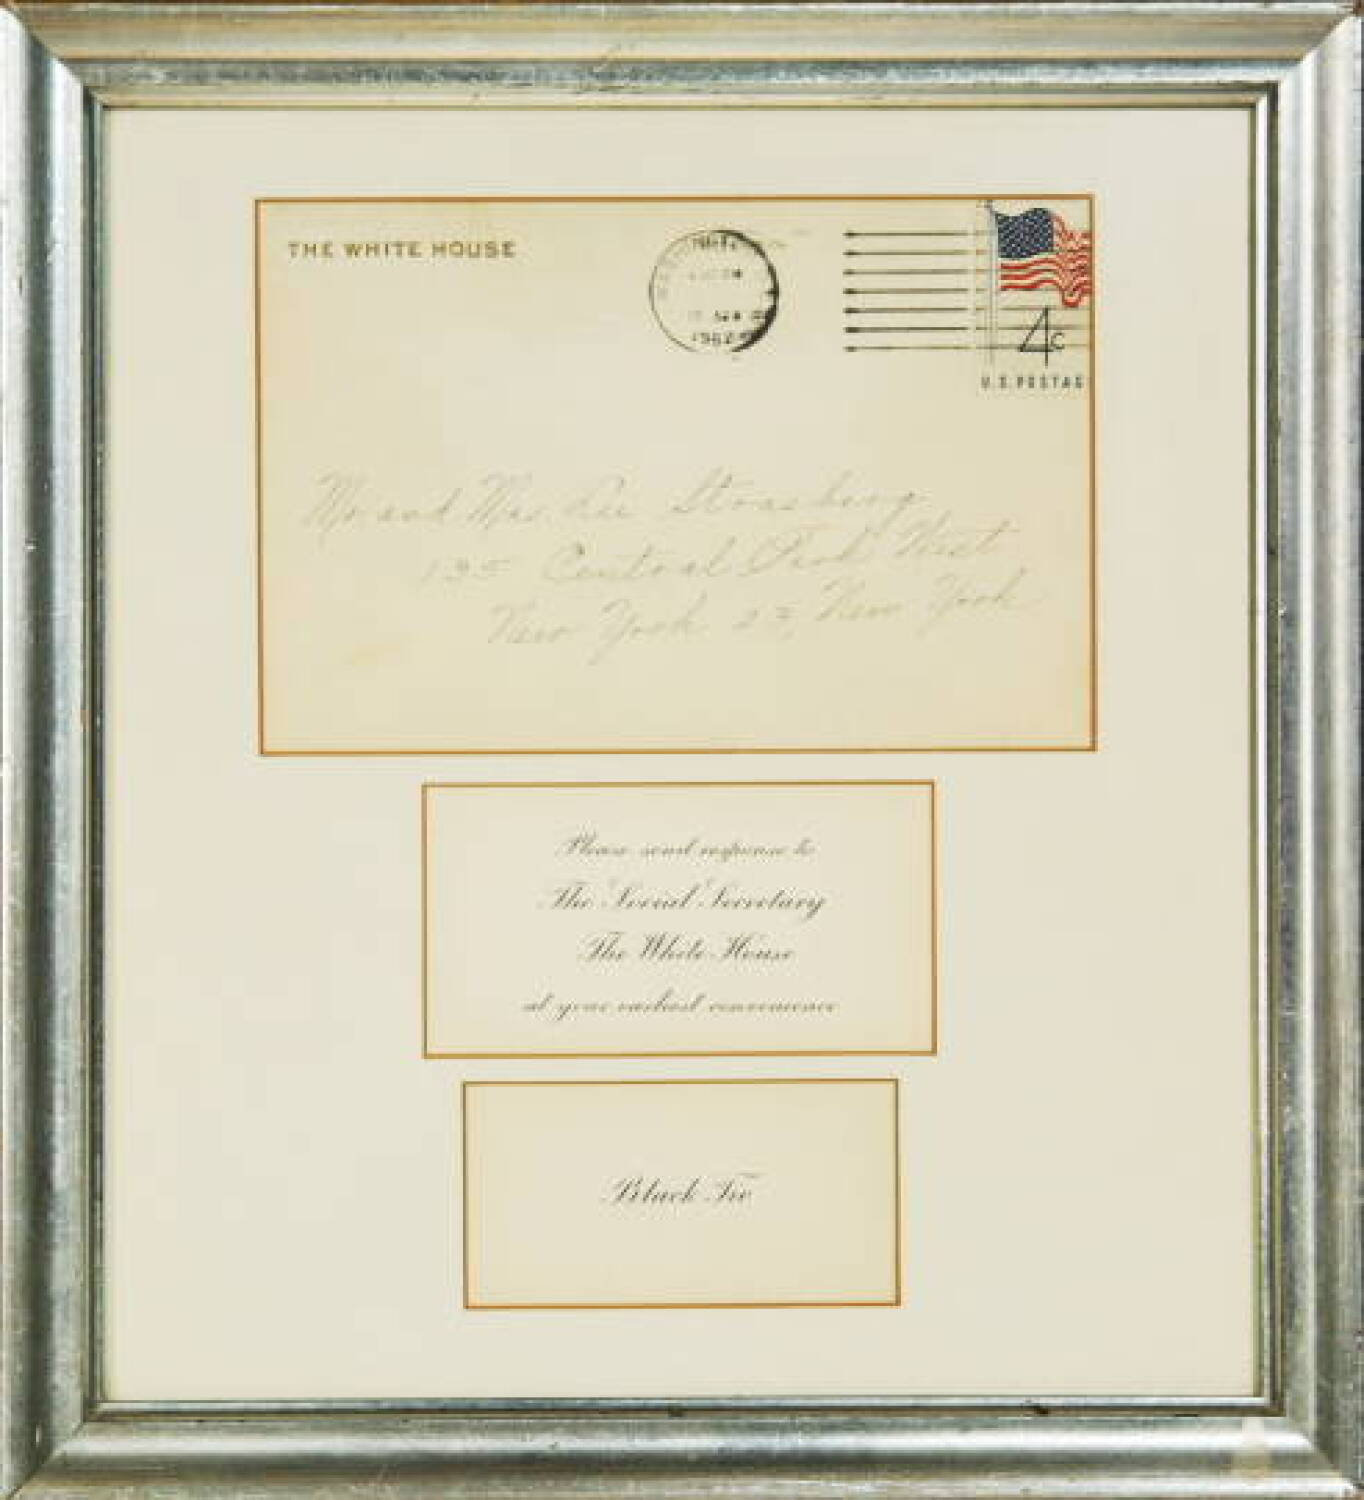 THE WHITE HOUSE
1962
4c
U.S. POSTAG
Mr. and Mrs. Lee Strasberg
135 Central Park West
New York 23, New York
Please send response to
The Social Secretary
The White House
at your earliest convenience
Black Tie